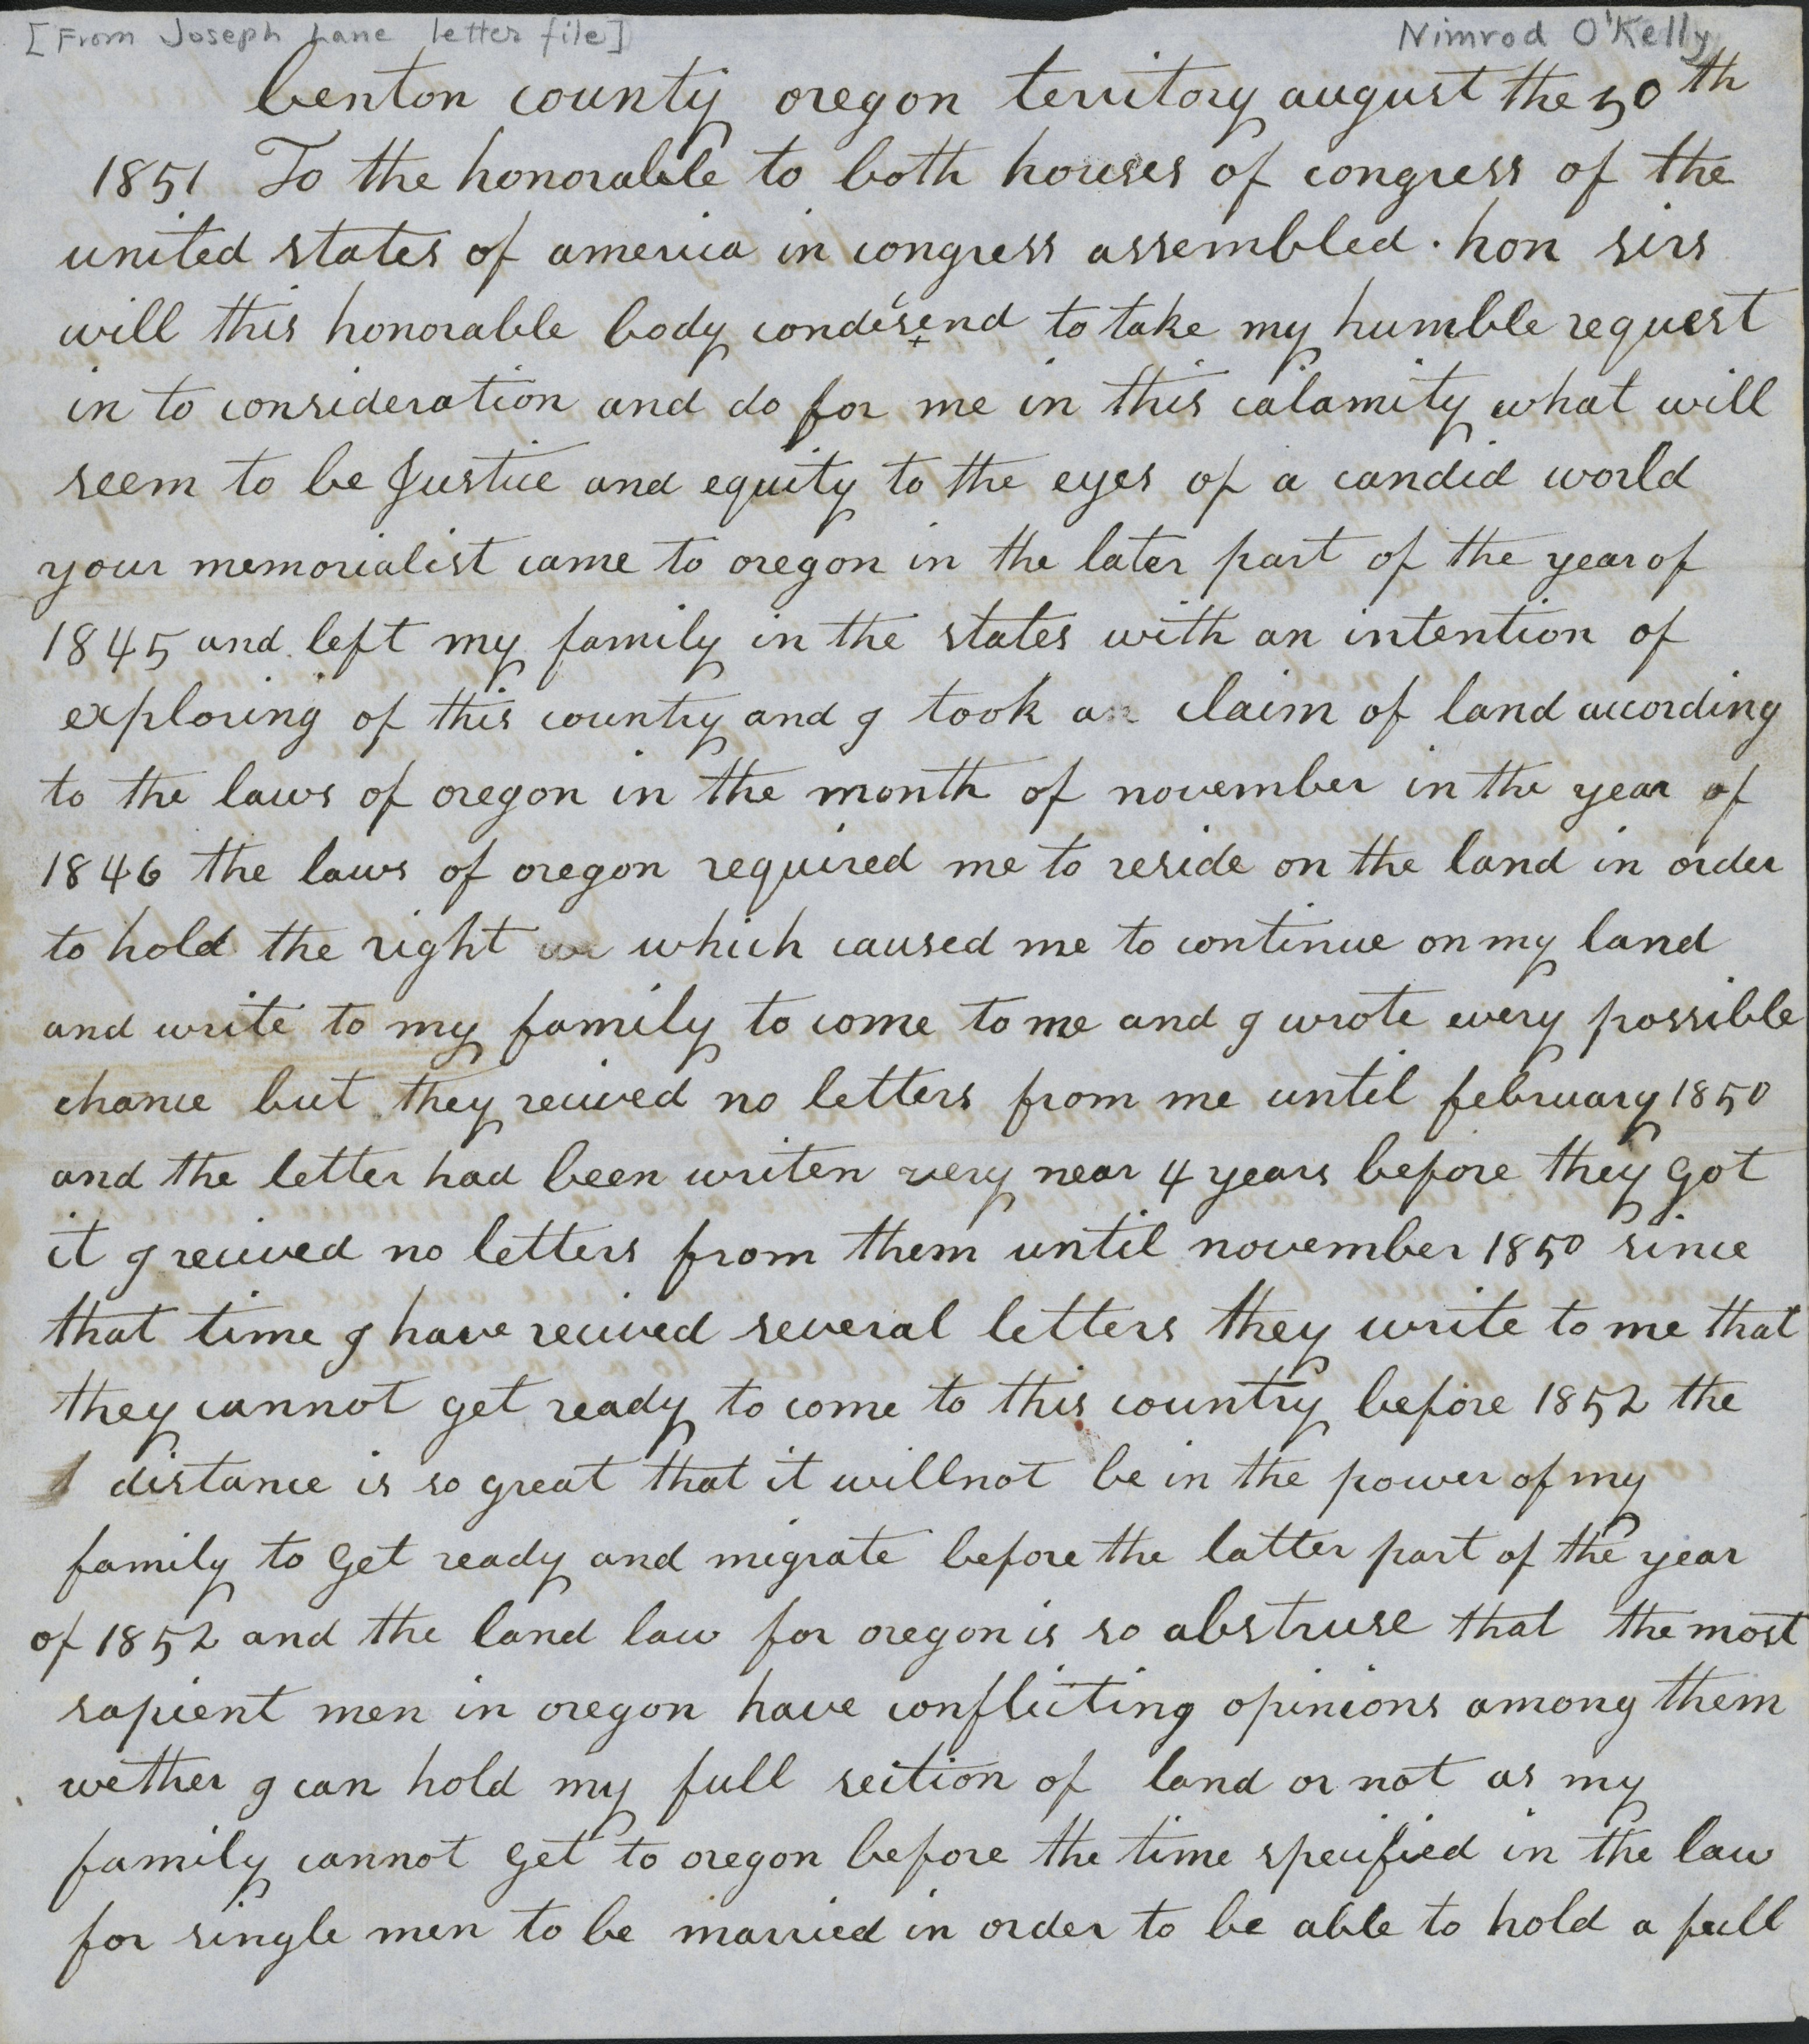 [From Joseph Lane letter file]
Nimrod O'Kelly
benton county oregon territory august the 30th
1851 To the honorable to both houses of congress of the
united states of america in congress assembled . hon sirs
will this honorable body condescend to take my humble request
in to consideration and do for me in this calamity what will
seem to be Justice and equity to the eyes of a candid world
your memorialist came to oregon in the later part of the year of
1845 and left my family in the states with an intention of
exploring of this country and I took a claim of land according
to the laws of oregon in the month of november in the year of
1846 the laws of oregon required me to reside on the land in order
to hold the right which caused me to continue on my land
and write to my family to come to me and I wrote every possible
chance but they recived no letters from me until february 1850
and the letter had been writen very near 4 years before they got
it I recived no letters from them until november 1850 since
that time I have recived several letters they write to me that
they cannot get ready to come to this country before 1852 the
distance is so great that it will not be in the power of my
family to get ready and migrate before the latter part of the year
of 1852 and the land law for oregon is so abstruse that the most
sapient men in oregon have conflicting opinions among them
wether I can hold my full section of land or not as my
family cannot get to oregon before the time specified in the law
for single men to be married in order to be able to hold a full